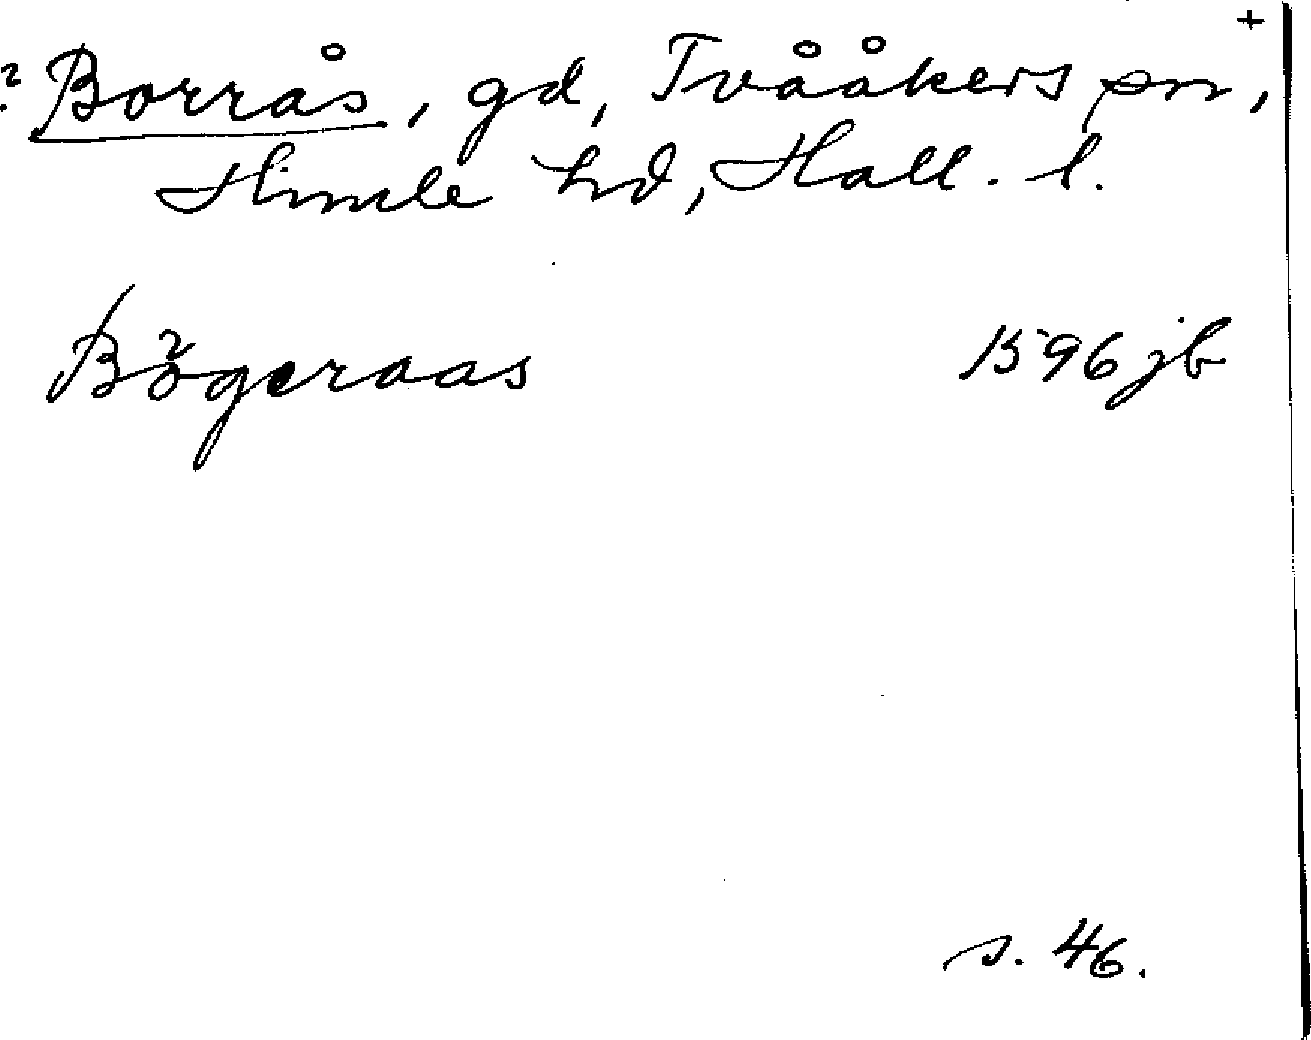 +
? Borrås, gd, Tvååkers sn,
Himle hd, Hall. l.
Bögeraas 1596 jb
s. 46.